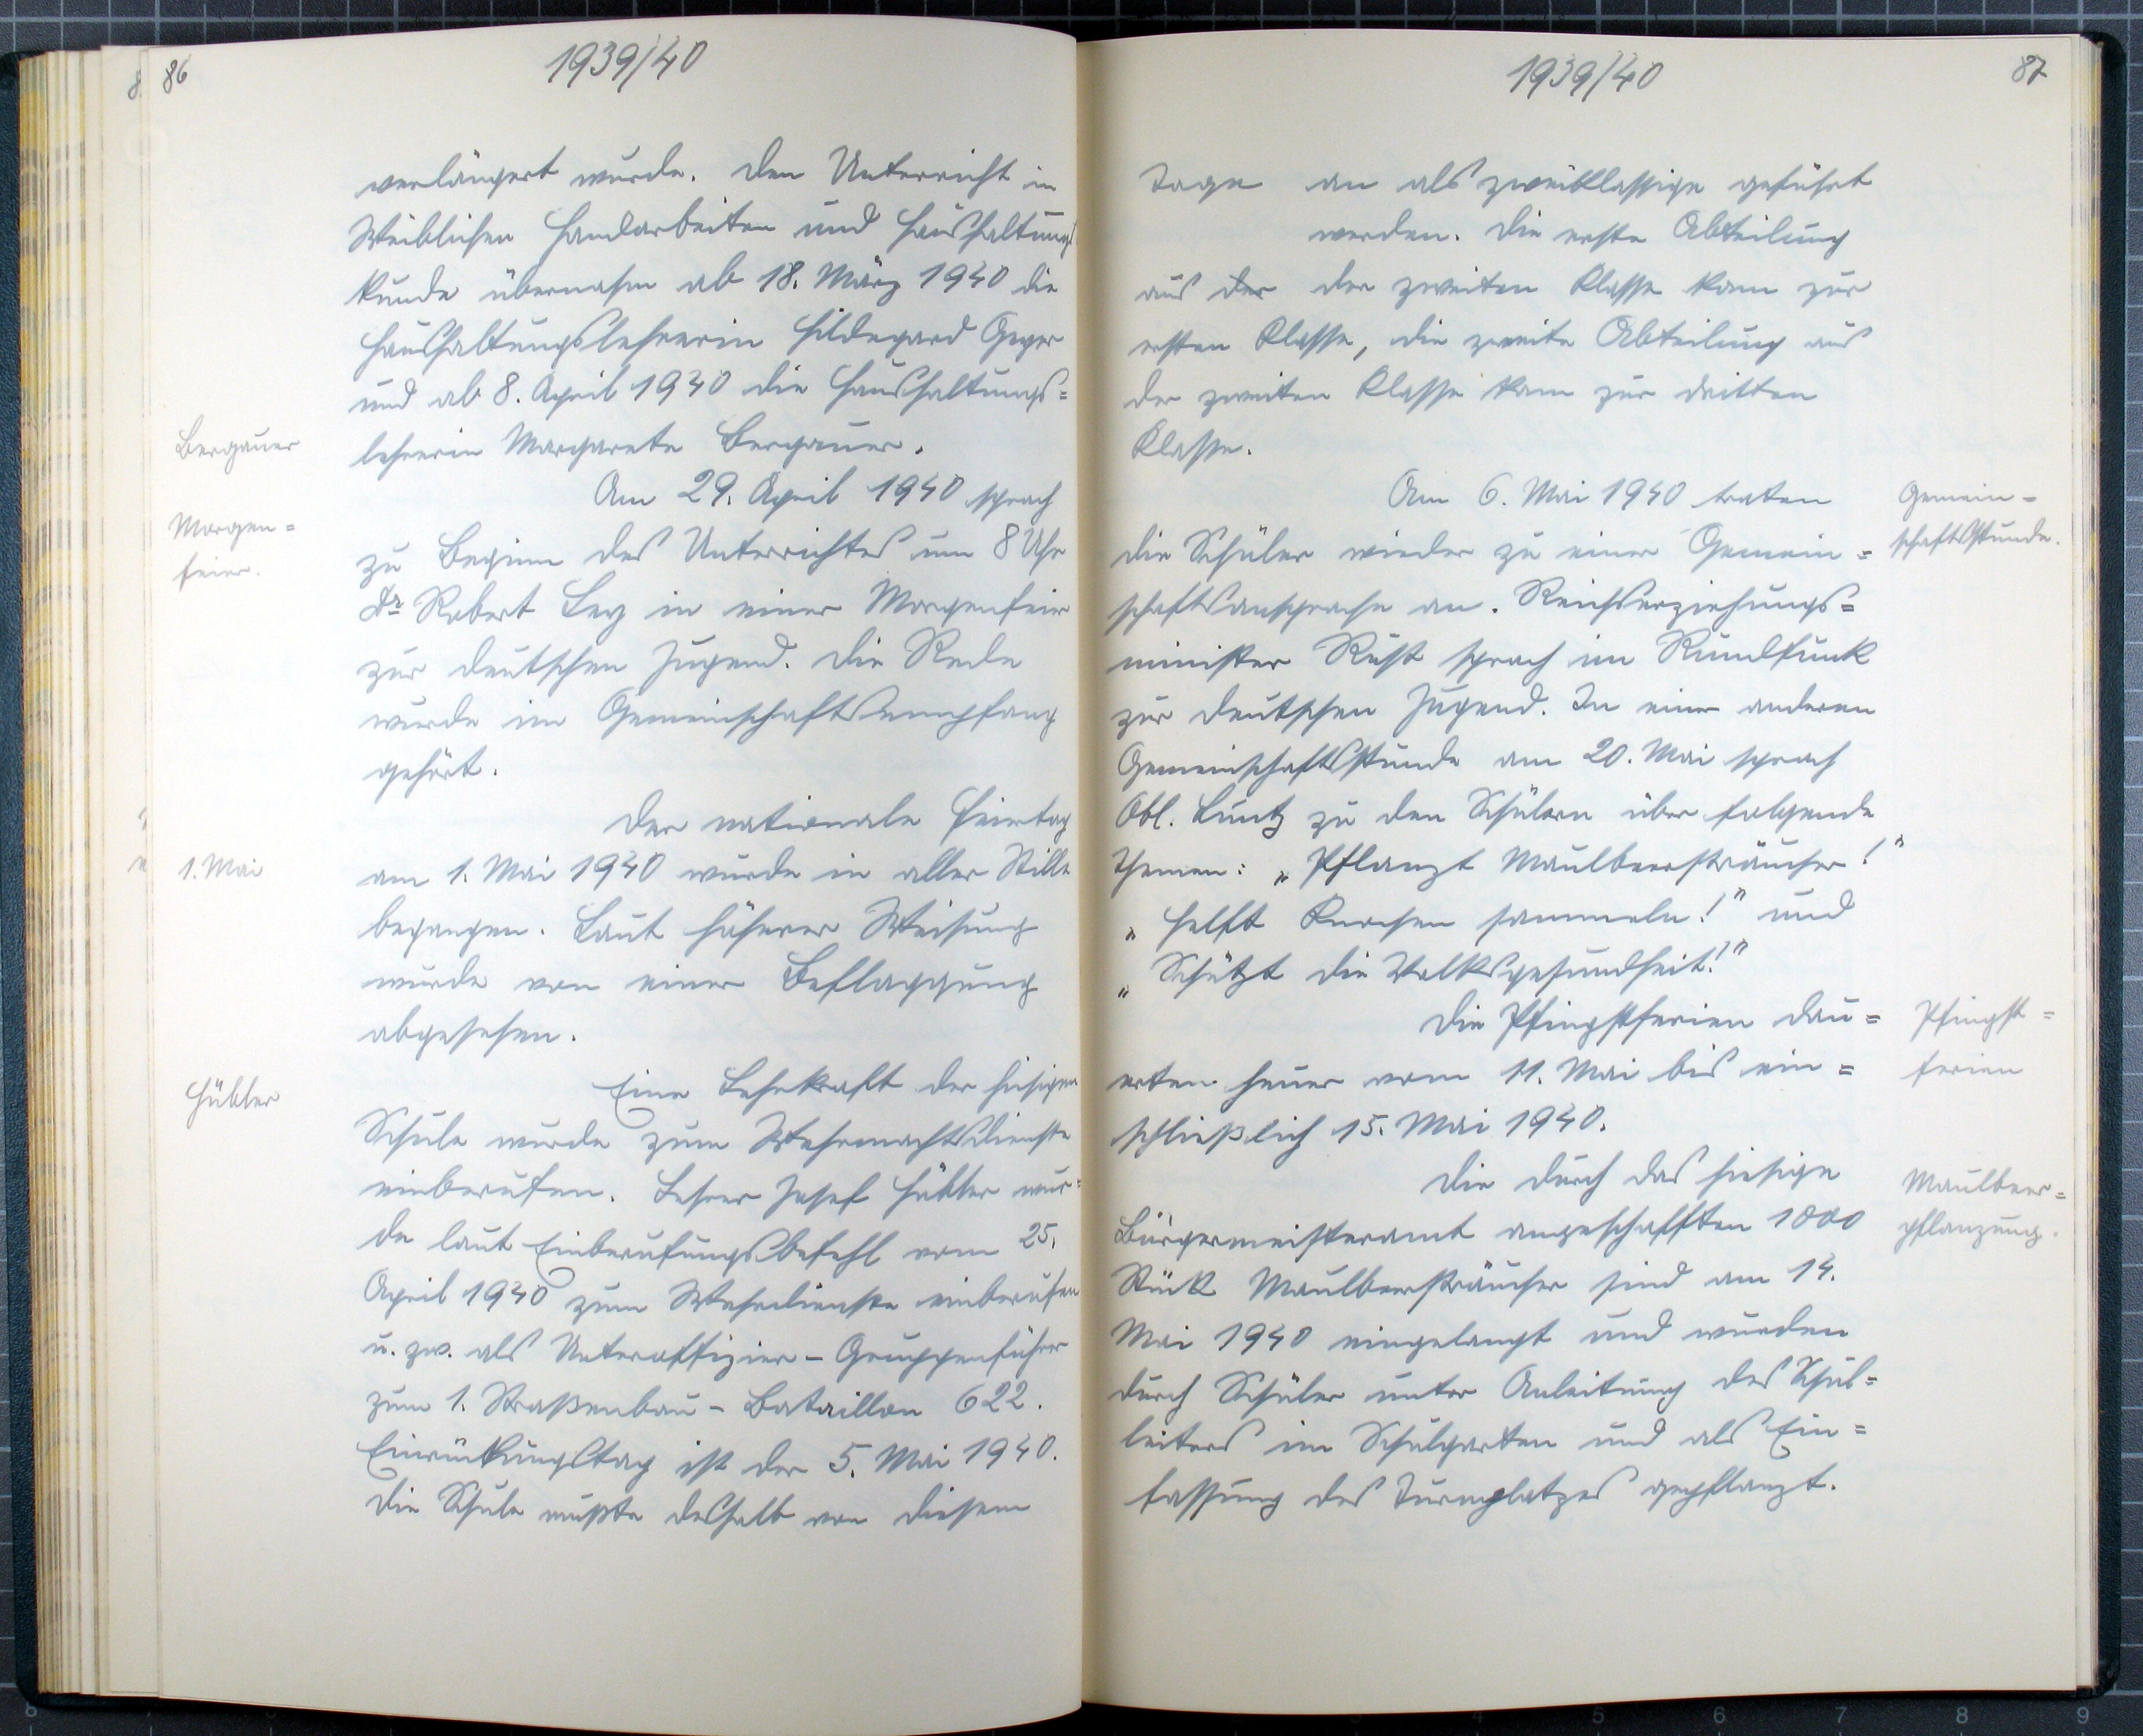 86
1939/40
verlängert wurde. Den Unterricht in
Weiblichen Handarbeiten und Haushaltungs
kunde übernahm ab 18. März 1940 die
Haushaltungslehrerin Hildegard Geyer
und ab 8. April 1940 die Haushaltungs=
Bergauer
lehrerin Margarete Bergauer.
Am 29. April 1940 sprach
Morgen=
feier.
zu Beginn des Unterrichtes um 8 Uhr
Dr Robert Ley in einer Morgenfeier
zur deutschen Jugend. Die Rede
wurde im Gemeinschaftsempfang
gehört.
Der nationale Feiertag
1. Mai
am 1. Mai 1940 wurde in aller Stille
begangen. Laut höherer Weisung
wurde von einer Beflaggung
abgesehen.
Hübler
Eine Lehrkraft der hiesigen
Schule wurde zum Wehrmachtsdienste
einberufen. Lehrer Josef Hübler wur=
de laut Einberufungsbefehl vom 25.
April 1940 zum Wehrdienste einberufen
u. zw. als Unteroffizier - Gruppenführer
zum 1. Straßenbau - Bataillon 622.
Einrückungstag ist der 5. Mai 1940.
Die Schule mußte deshalb von diesem
87
1939/40
Tage an als zweiklassige geführt
werden. Die erste Abteilung
aus der der zweiten Klasse kam zur
ersten Klasse, die zweite Abteilung aus
der zweiten Klasse kam zur dritten
Klasse.
Am 6. Mai 1940 traten
Gemein-
schaftsstunde.
die Schüler wieder zu einer Gemein=
schaftsansprache an. Reichserziehungs=
minister Rust sprach im Rundfunk
zur deutschen Jugend. In einer anderen
Gemeinschaftsstunde am 20. Mai sprach
Obl. Luntz zu den Schülern über folgende
Themen: „Pflanzt Maulbeersträucher!"
„Helft Knochen sammeln!" und
„Schützt die Volksgesundheit!"
Die Pfingstferien dau=
Pfingst=
ferien
erten heuer vom 11. Mai bis ein=
schließlich 15. Mai 1940.
Die durch das hiesige
Maulbeer=
pflanzung.
Bürgermeisteramt angeschafften 1000
Stück Maulbeersträucher sind am 14.
Mai 1940 eingelangt und wurden
durch Schüler unter Anleitung des Schul=
leiters im Schulgarten und als Ein=
fassung des Turnplatzes gepflanzt.